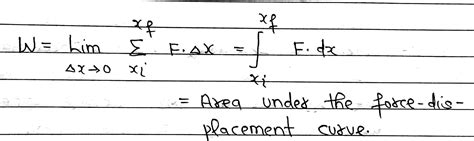 W = Lim Σ F.Δx = ∫ F.dx
Δx→0 xi xf xi xf
= Area under the force-dis-
placement curve.